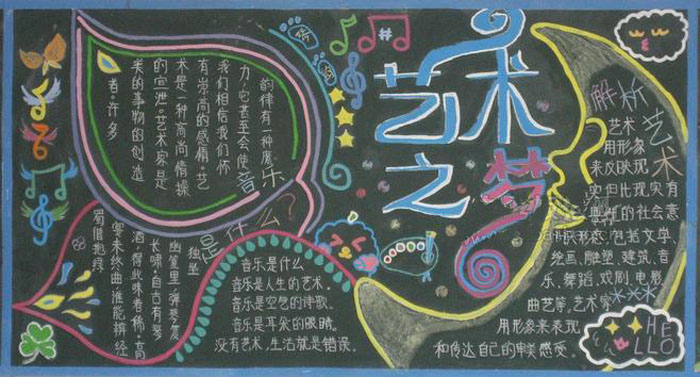 艺术之梦
韵律有一种魔
力,它甚至会使
我们相信我们怀
有崇高的感情。艺
术是一种高尚情操
的宣泄。艺术家是
类的事物的创造
者,许多
音乐是什么?
独坐
幽篁里,弹琴复
长啸。自古有琴
酒,得此味者稀。高
宴未终曲,谁能辨经
蜀僧抱绿
音乐是什么
音乐是人生的艺术。
音乐是空气的诗歌、
音乐是耳朵的眼睛。
没有艺术,生活就是错误。
解析艺术
艺术
用形象
来反映现
实但比现实有
典型的社会意
识形态,包括文学、
绘画、雕塑、建筑、音
乐、舞蹈、戏剧、电影
曲艺等。艺术家
用形象来表现
和传达自己的审美感受。
HE
LLO